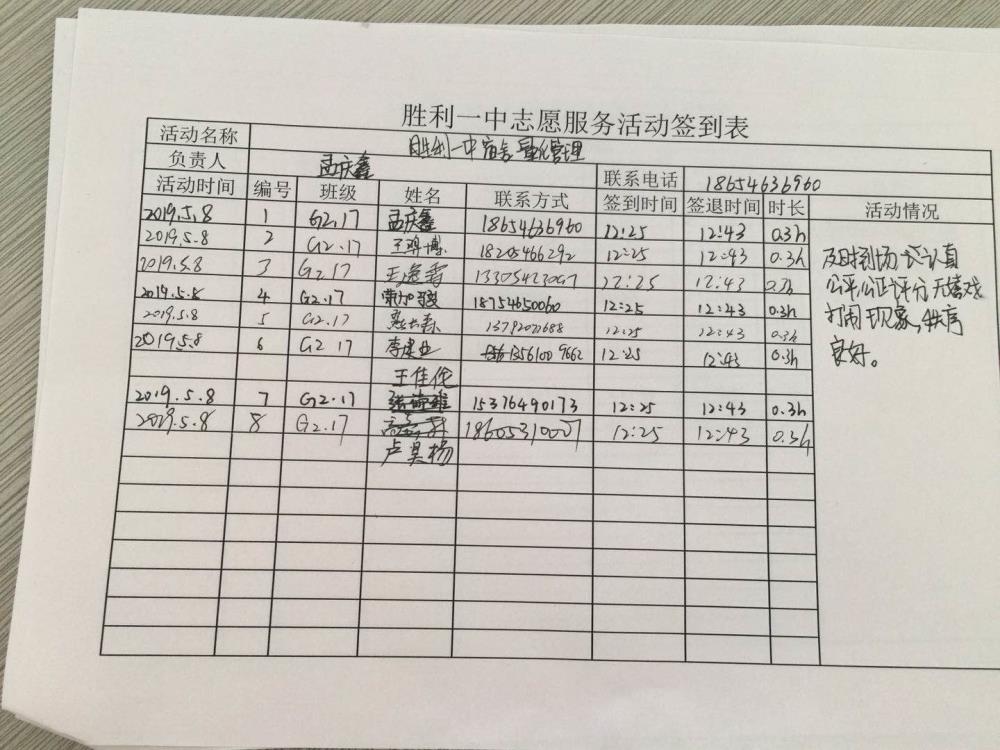 胜利一中志愿服务活动签到表
活动名称 胜利一中宿舍量化管理
负责人 孟庆鑫 联系电话 18654636960
活动时间 编号 班级 姓名 联系方式 签到时间 签退时间 时长 活动情况
2019.5.8 1 G2.17 孟庆鑫 18654636960 12:25 12:43 0.3h
2019.5.8 2 G2.17 王骅博 18205466292 12:25 12:43 0.3h
2019.5.8 3 G2.17 12:25 12:43 0.3h
2019.5.8 4 G2.17 18754650060 12:25 12:43 0.3h
2019.5.8 5 G2.17 12:25 12:43 0.3h
2019.5.8 6 G2 17 李建业 13561009662 12:25 12:43 0.3h
王佳伦
2019.5.8 7 G2.17 15376490173 12:25 12:43 0.3h
2019.5.8 8 G2.17 18605310007 12:25 12:43 0.3h
卢昊杨
及时到场 认真
公平公正评分 无嬉戏
打闹现象，秩序
良好。